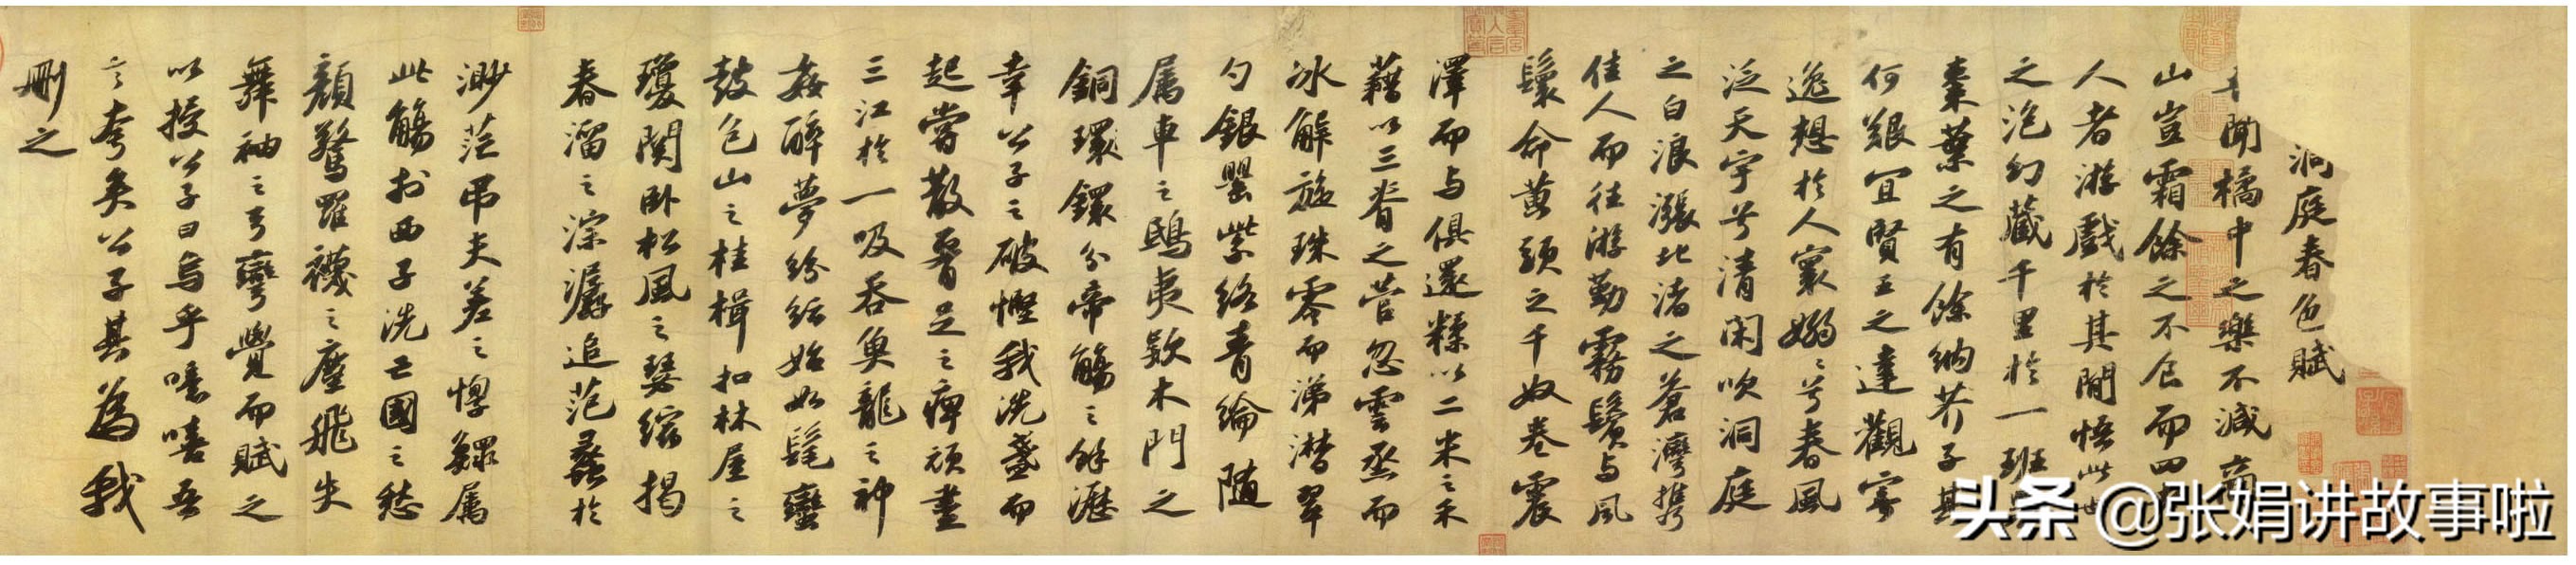 洞庭春色賦
聞橘中之樂不減商
山豈霜餘之不食而四
人者游戲於其間悟此世
之泡幻藏千里於一班
棗葉之有餘納芥子其
何艱宜賢王之達觀寄
逸想於人寰嫋〻兮春風
泛天宇兮清閑吹洞庭
之白浪漲北渚之蒼灣携
佳人而往游勤霧鬢与風
鬟命黄頭之千奴卷震
澤而与俱還糅以二米之禾
藉以三脊之菅忽雲烝而
冰解旋珠零而涕潸翠
勺銀罌紫絡青綸隨
属車之鴟夷款木門之
銅環鐶分帝觴之餘瀝
幸公子之破慳我洗盞而
起嘗散腰足之痺頑盡
三江於一吸吞魚龍之神
姦醉夢紛紜始如髦蠻
鼓包山之桂楫扣林屋之
瓊關卧松風之瑟縮揭
春溜之淙潺追范蠡於
渺茫吊夫差之惸鰥属
此觴於西子洗亡國之愁
顏驚羅襪之塵飛失
舞袖之弓彎覺而賦之
以授公子曰烏乎噫嘻吾
言夸矣公子其為我
刪之
头条 @张娟讲故事啦